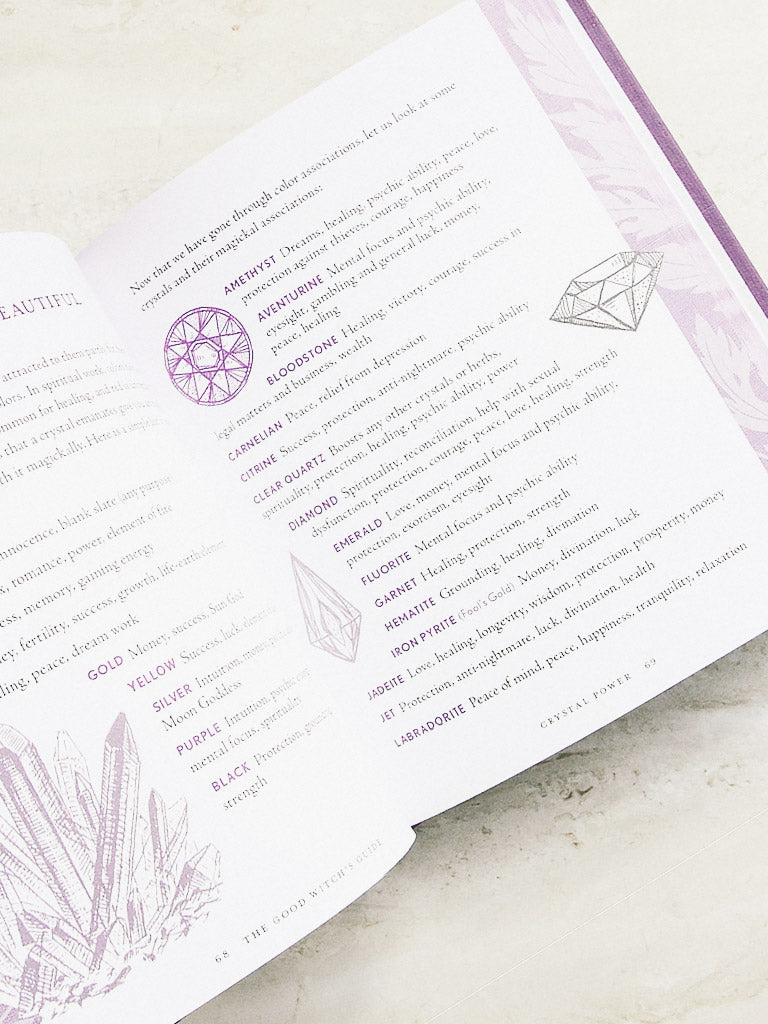 EAUTIFUL
attracted to them
lors. In spiritual work,
ommon for healing, and
s that a crystal emanates
th it magickally. Here is a
nnocence, blank slate (any purpose
x, romance, power, element of fire
ess, memory, gaming energy
ney, fertility, success, growth, life-earth
ling, peace, dream work
GOLD Money, success, Sun God
YELLOW Success, luck,
SILVER Intuition,
Moon Goddess
PURPLE Intuition,
mental focus, spirituality
BLACK Protection,
strength
68 THE GOOD WITCH'S GUIDE
Now that we have gone through color associations, let us look at some
crystals and their magickal associations:
AMETHYST Dreams, healing, psychic ability, peace, love,
protection against thieves, courage, happiness
AVENTURINE Mental focus and psychic ability,
eyesight, gambling and general luck, money,
peace, healing
BLOODSTONE Healing, victory, courage, success in
legal matters and business, wealth
CARNELIAN Peace, relief from depression
CITRINE Success, protection, anti-nightmare, psychic ability
CLEAR QUARTZ Boosts any other crystals or herbs,
spirituality, protection, healing, psychic ability, power
DIAMOND Spirituality, reconciliation, help with sexual
dysfunction, protection, courage, peace, love, healing, strength
EMERALD Love, money, mental focus and psychic ability,
protection, exorcism, eyesight
FLUORITE Mental focus and psychic ability
GARNET Healing, protection, strength
HEMATITE Grounding, healing, divination
IRON PYRITE (Fool's Gold) Money, divination, luck
JADEITE Love, healing, longevity, wisdom, protection, prosperity, money
JET Protection, anti-nightmare, luck, divination, health
LABRADORITE Peace of mind, peace, happiness, tranquility, relaxation
CRYSTAL POWER 69